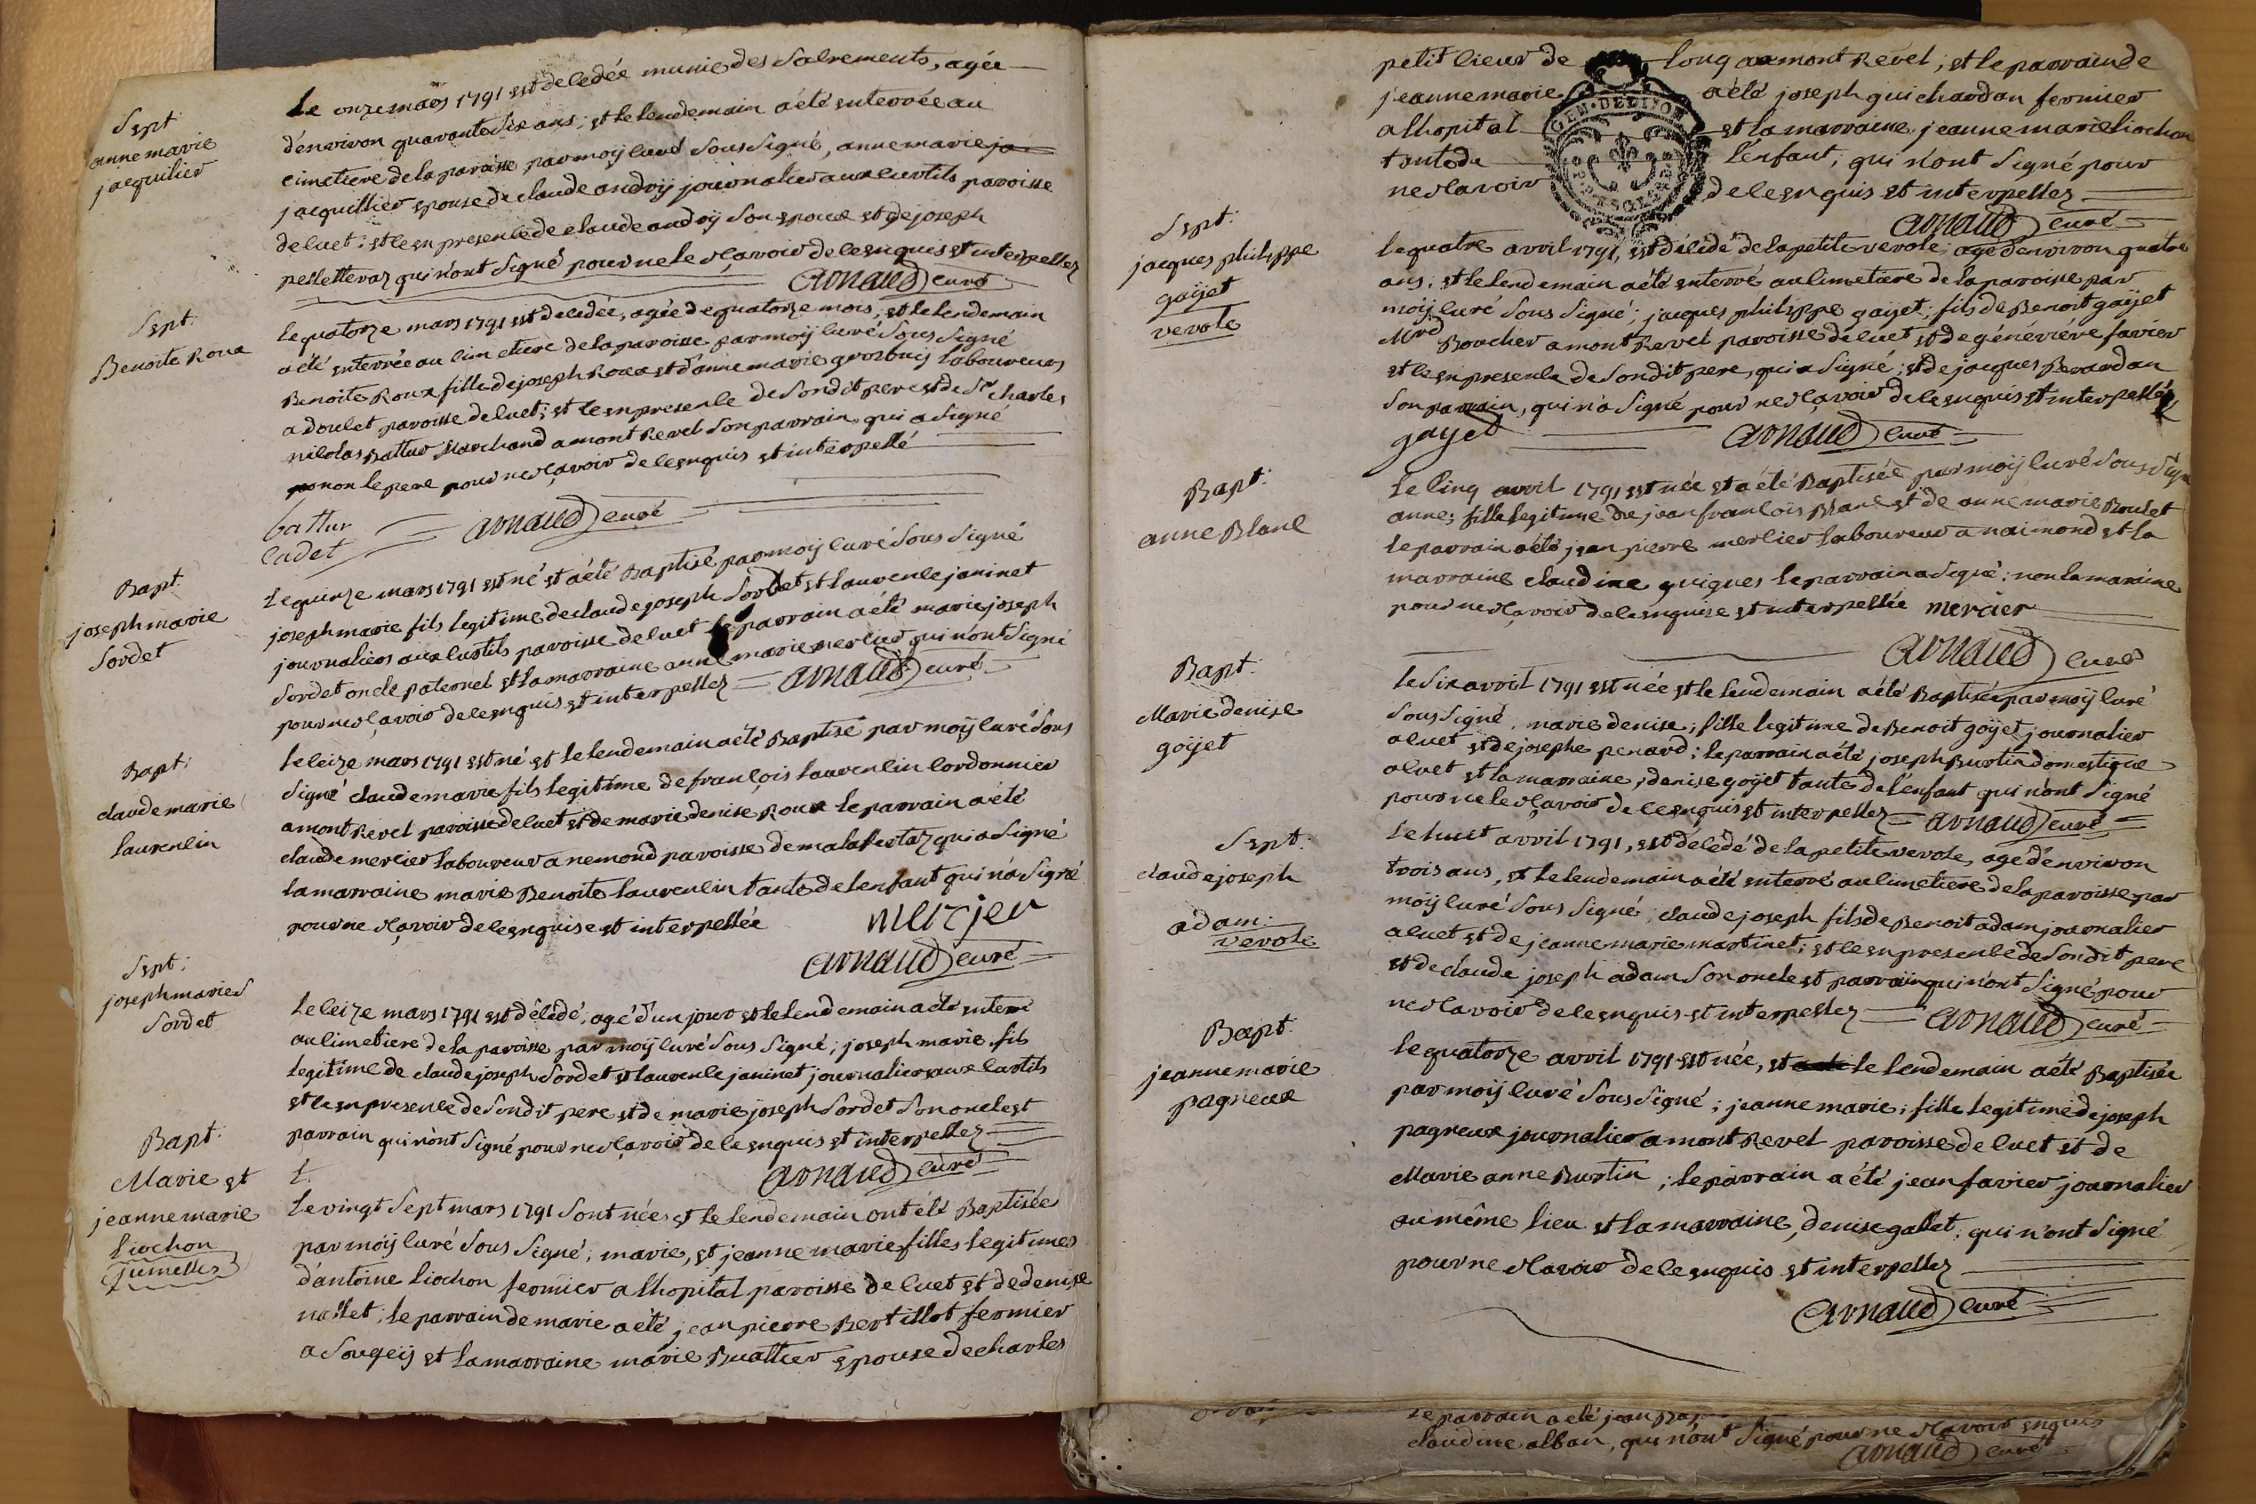 Sept:
anne marie
jacquilier
Le onze mars 1791 est decedée munie des sacrements, agée
d'environ quarante six ans; et le lendemain a été enterrée au
cimetiere de la paroisse par moÿ curé sous signé, anne marie ja
jacquillier epouse de claude andrÿ journalier aux curtils paroisse
de cuet; et ce en presence de claude andrÿ son epoux et de joseph
pelletteraz qui n'ont signé pour ne le sçavoir de ce enquis et interpellez
arnaud curé
Sept:
Benoite Roux
Le quatorze mars 1791 est decedée, agée de quatorze mois, et le lendemain
a été enterrée au cimetiere de la paroisse par moÿ curé sous signé
Benoite Roux fille de joseph Roux et d'anne marie grosbuis laboureurs
a doulet paroisse de cuet; et ce en presence de son dit pere et de Sr charles
nicolas Battur Marchand a mont Revel son parrain, qui a signé
non le pere pour ne sçavoir de ce enquis et interpellé
battur
cadet
arnaud curé
Bapt:
joseph marie
Sordet
Le quinze mars 1791 est né et a été Baptisé par moÿ curé sous signé
joseph marie fils legitime de claude joseph Sordet et laurence janinet
journaliers aux curtils paroisse de cuet le parrain a été marie joseph
Sordet oncle paternel et la marraine anne marie mercier qui n'ont signé
pour ne sçavoir de ce enquis et interpellez arnaud curé
Bapt:
claude marie
laurencin
Le seize mars 1791 est né et le lendemain a été Baptisé par moÿ curé sous
signé claude marie fils legitime de françois laurencin cordonnier
a mont Revel paroisse de cuet et de marie denise Roux le parrain a été
claude mercier laboureur a nemond paroisse de malafretaz qui a signé
la marraine marie Benoite laurencin tante de l'enfant qui n'a signé
pour ne sçavoir de ce enquise et interpellée mercjer
arnaud curé
Sept:
joseph marie
Sordet
Le seize mars 1791 est décédé, agé d'un jour et le lendemain a été enterré
au cimetiere de la paroisse par moÿ curé sous signé; joseph marie fils
legitime de claude joseph Sordet et laurence janinet journaliers aux curtils
et ce en presence de son dit pere et de marie joseph Sordet son oncle et
parrain qui n'ont signé pour ne sçavoir de ce enquis et interpellez
arnaud curé
Bapt:
Marie et
jeanne marie
Liochon
Jumelles
L
Le vingt sept mars 1791 sont nées et le lendemain ont été Baptisée
par moÿ curé sous signé; marie, et jeanne marie filles legitimes
d'antoine Liochon fermier a lhopital paroisse de cuet et de denise
nallet; le parrain de marie a été jean pierre Bertillot fermier
a Sougeÿ et la marraine marie Buattier epouse de charles
petit lieur de long a mont Revel; et le parrain de
jeanne marie a été joseph guichardan fermier
a lhopital et la marraine, jeanne marie liochon
tante de l'enfant, qui n'ont signé pour
ne sçavoir de ce enquis et interpellez
GEN. DE DIJON
arnaud curé
Sept:
jacques philippe
gaÿet
verole
Le quatre avril 1791, est décédé de la petite verole, agé d'environ quatre
ans, et le lendemain a été enterré au cimetiere de la paroisse par
moÿ curé sous signé; jacques philippe gaÿet; fils de Benoit gaÿet
Mrd Boucher a mont Revel paroisse de cuet et de généviéve favier
et ce en presence de son dit pere, qui a signé; et de jacques Bevardan
son parrain, qui n'a signé pour ne sçavoir de ce enquis et interpellé
gayet arnaud curé
Bapt:
anne Blanc
Le cinq avril 1791 est née et a été Baptisée par moÿ curé sous signé
anne; fille legitime de jean françois Blanc et de anne marie Boulet
le parrain a été jean pierre mercier laboureur a naimond et la
marraine claudine guigues le parrain a signé; non la maraine
pour ne sçavoir de ce enquise et interpellée mercier
arnaud curé
Bapt:
Marie denise
goÿet
Le six avril 1791 est née et le lendemain a été Baptisée par moÿ curé
sous signé. marie denise; fille legitime de Benoit goÿet journalier
a cuet et de josephe penard; le parrain a été joseph Burtin domestique
a cuet et la marraine, denise goÿet tante de l'enfant qui n'ont signé
pour ne le sçavoir de ce enquis et interpellez arnaud curé
Sept:
claude joseph
adam:
verole
Le huit avril 1791, est décédé de la petite verole, agé d'environ
trois ans, et le lendemain a été enterré au cimetiere de la paroisse par
moÿ curé sous signé; claude joseph fils de Benoit adam journalier
a cuet et de jeanne marie martinet; et ce en presence de son dit pere
et de claude joseph adam son oncle et parrain qui n'ont signé pour
ne sçavoir de ce enquis et interpellez arnaud curé
Bapt:
jeanne marie
pagneux
Le quatorze avril 1791 est née, et le lendemain a été Baptisée
par moÿ curé sous signé; jeanne marie; fille legitime de joseph
pagneux journalier a mont Revel paroisse de cuet et de
Marie anne Burtin; le parrain a été jean favier journalier
au même lieu et la marraine, denise gallet; qui n'ont signé
pour ne sçavoir de ce enquis et interpellez
arnaud curé
le parrain a été jean
claudine alban, qui n'ont signé pour ne sçavoir enquis
arnaud curé